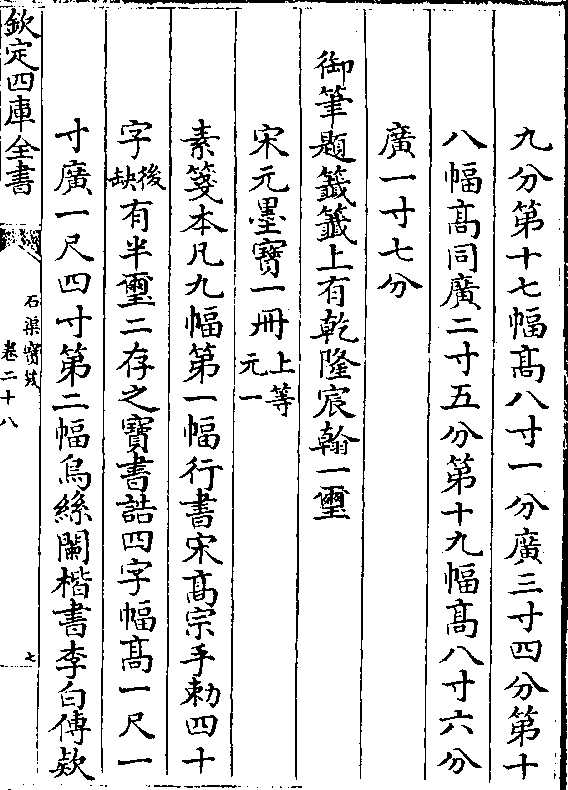 九分第十七幅髙八寸一分廣三寸四分第十
八幅髙同廣二寸五分第十九幅髙八寸六分
廣一寸七分
御筆題籤籤上有乾隆宸翰一璽
宋元墨寶一冊上等元一
素箋本凡九幅第一幅行書宋髙宗手勅四十
字後缺有半璽二存之寶書誥四字幅髙一尺一
寸廣一尺四寸第二幅烏絲闌楷書李白傳欵
欽定四庫全書
石渠寶笈
卷二十八
七